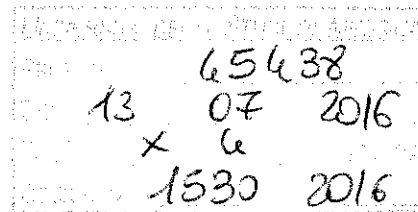 45438
13 07 2016
x 4
1530 2016